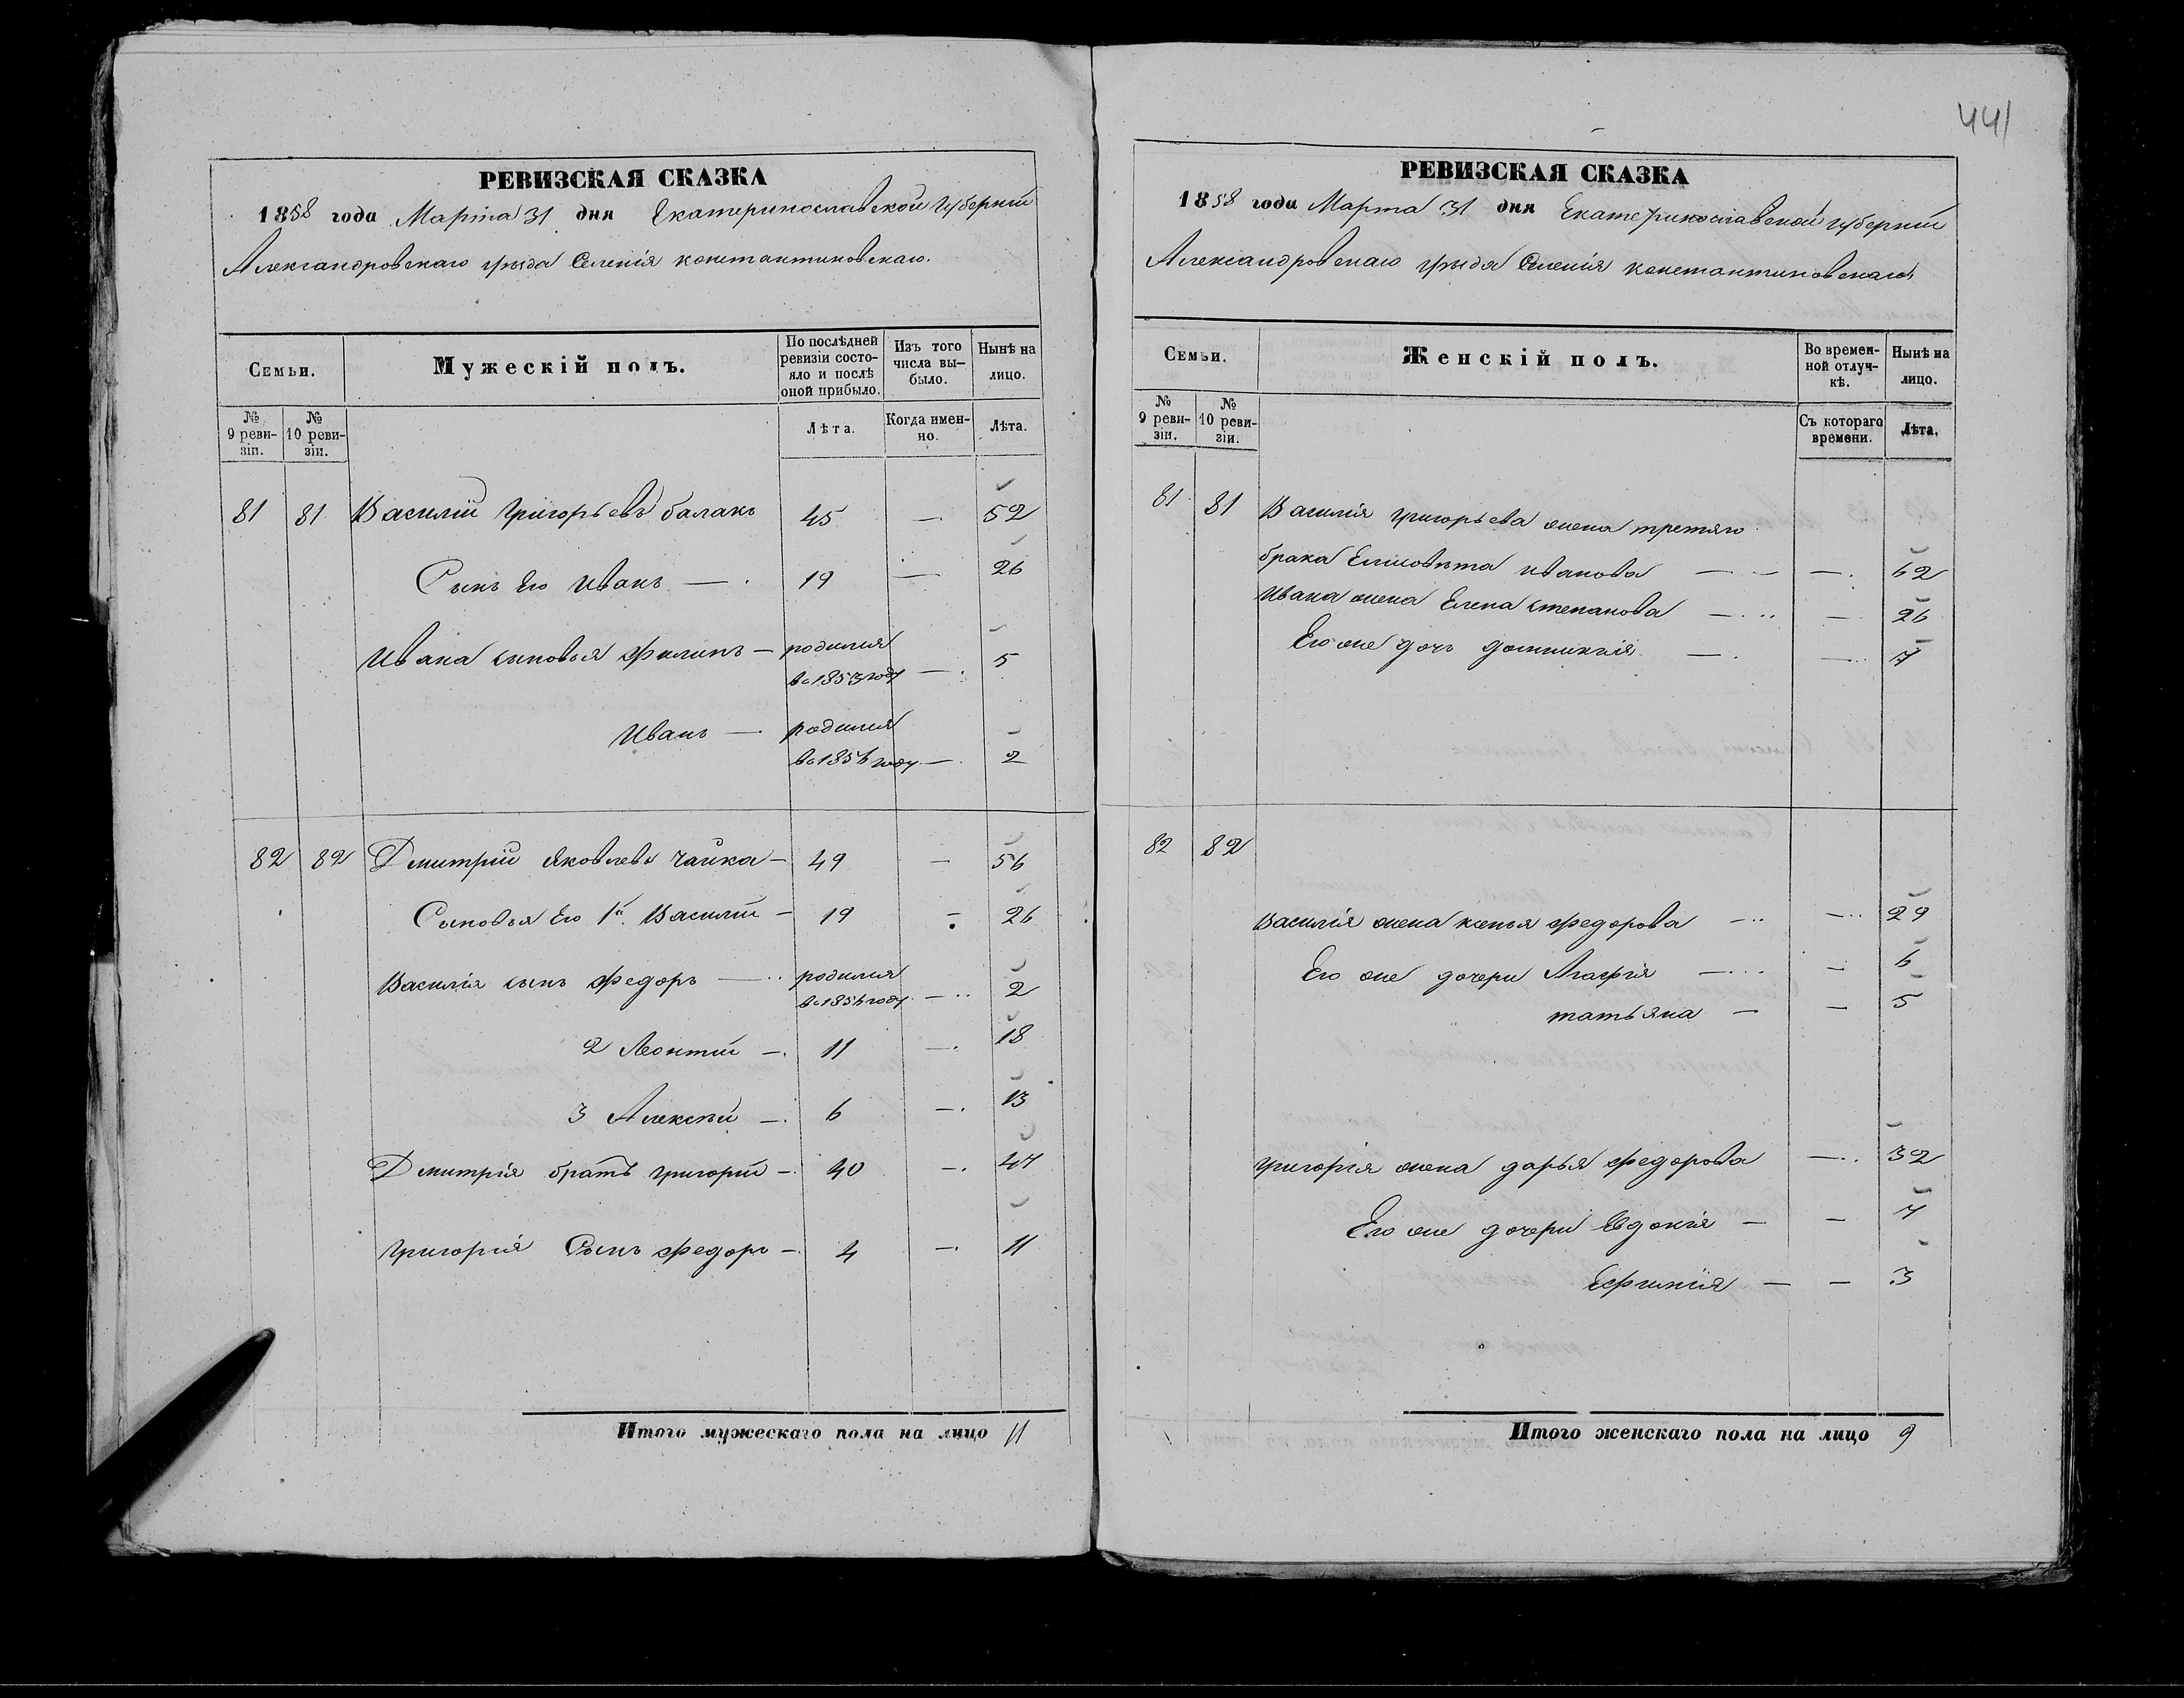 441
РЕВИЗСКАЯ СКАЗКА
1858 года Марта 31 дня Екатеринославской губернiи
Александровскаго уѣзда Селенiя константиновскаго.
Семьи.
Мужескiй полъ.
По послѣдней ревизiи состояло и послѣ оной прибыло.
Изъ того числа выбыло.
Нынѣ на лицо.
№ 9 ревизiи.
№ 10 ревизiи.
Лѣта.
Когда именно.
Лѣта.
81 81 Василiй григорьевъ балакъ 45 — 52
Сынъ Его иванъ — 19 — 26
Ивана сыновья филипъ — родился
во 1853 году — 5
Иванъ — родился
во 1856 году — 2
82 82 Дмитрiй яковлевъ чайка — 49 — 56
Сыновья Его 1й Василiй — 19 — 26
Василiя сынъ федоръ — родился
во 1856 году — 2
2 Леонтiй — 11 — 18
3 Алексѣй — 6 — 13
Дмитрiя братъ григорiй — 40 — 47
григорiя Сынъ федоръ — 4 — 11
Итого мужескаго пола на лицо 11
РЕВИЗСКАЯ СКАЗКА
1858 года Марта 31 дня Екатеринославской губернiи
Александровскаго уѣзда Селенiя константиновскаго
Семьи.
Женскiй полъ.
Во временной отлучкѣ.
Нынѣ на лицо.
№ 9 ревизiи.
№ 10 ревизiи.
Съ котораго времени.
Лѣта.
81 81 Василiя григорьева жена третяго
брака Елисовѣта иванова — — 62
Ивана жена Елена степанова — — 26
Его же дочь домникiя — — 7
82 82
василiя жена ксенья федорова — — 29
Его же дочери Агафiя — — 6
татьяна — — 5
григорiя жена дарья федорова — 32
Его же дочери Евдокiя — — 7
Ефимiя — — 3
Итого женскаго пола на лицо 9